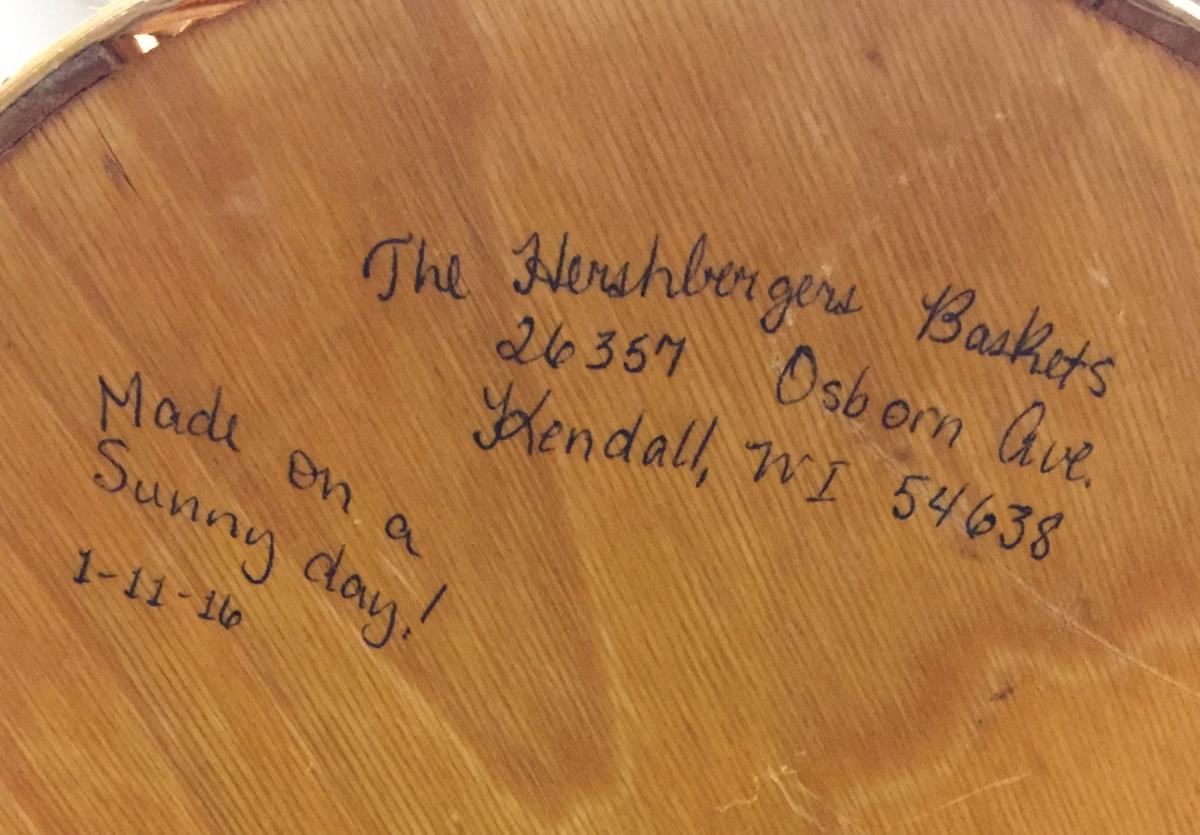 The Hershbergers Baskets
26357 Osborn Ave.
Kendall, WI 54638
Made on a
Sunny day!
1-11-16